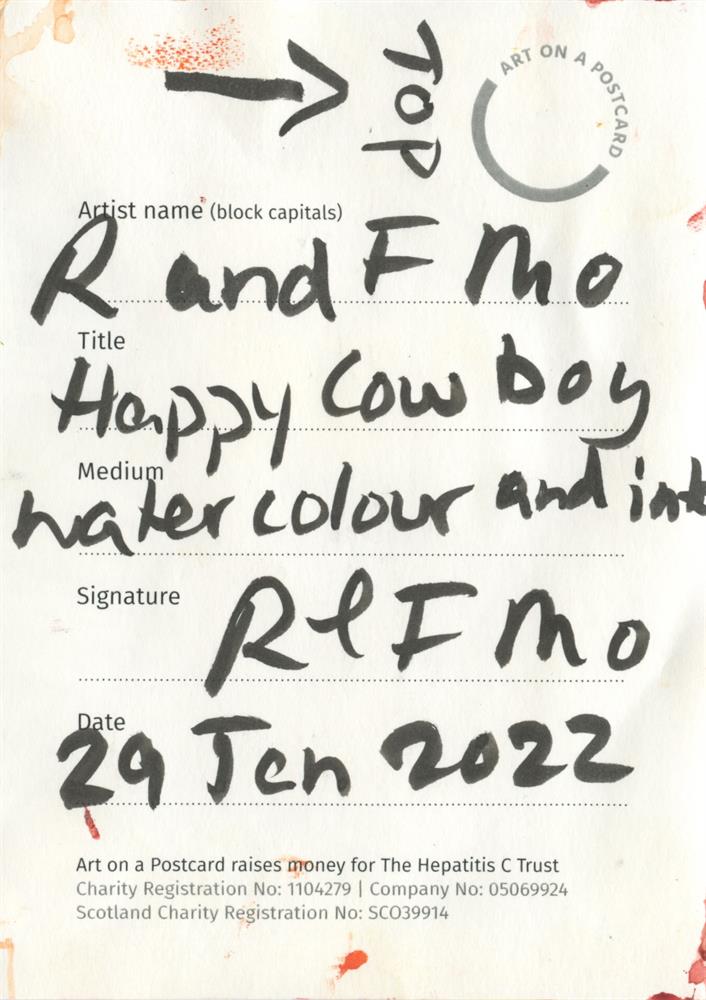 TOP
ART ON A POSTCARD
Artist name (block capitals)
R and F Mo
Title
Happy Cowboy
Medium
watercolour and ink
Signature
R & F Mo
Date
29 Jan 2022
Art on a Postcard raises money for The Hepatitis C Trust
Charity Registration No: 1104279 | Company No: 05069924
Scotland Charity Registration No: SCO39914